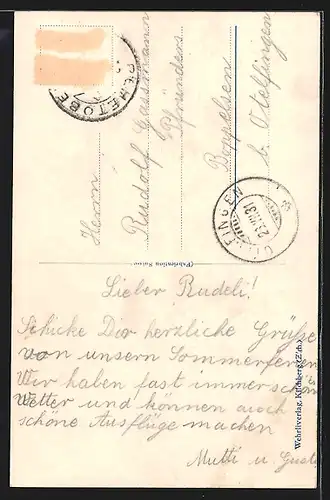 Herrn
Rudolf Gassmann
Pfründers
Boppelsen
b. Otelfingen
REHETOBEL
OTELFINGEN
(Fabrication Suisse)
Lieber Rudeli!
Schicke Dir herzliche Grüsse
von unsern Sommerferien
Wir haben fast immer schön
Wetter und können auch
schöne Ausflüge machen
Mutti u.
Wehrliverlag, Kilchberg (Zch.)